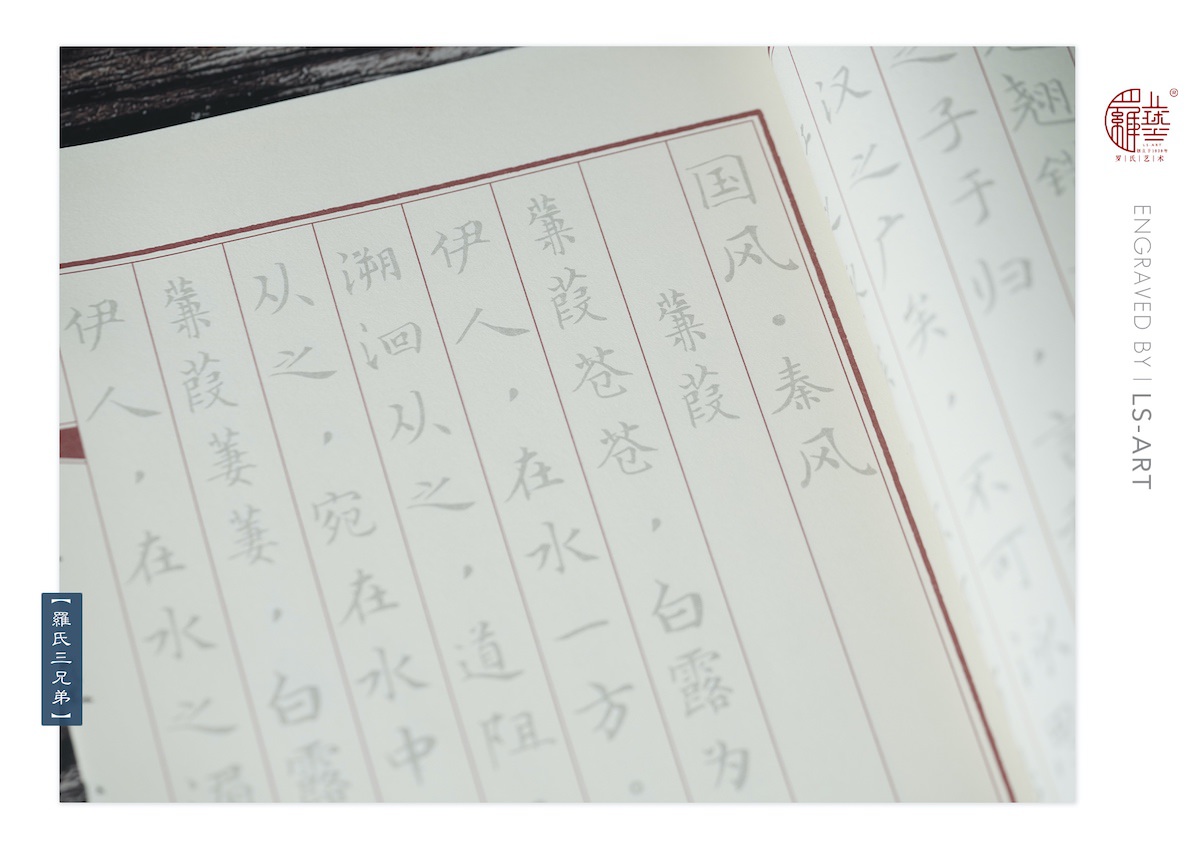 翘
之子于归，言
汉之广矣，不可
国风·秦风
蒹葭
蒹葭苍苍，白露为
伊人，在水一方。
溯洄从之，道阻
从之，宛在水中
蒹葭萋萋，白露
伊人，在水之
【羅氏三兄弟】
罗氏艺术
ENGRAVED BY | LS-ART